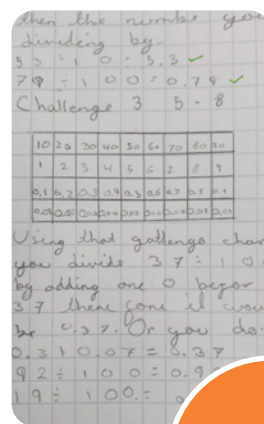 then the number you
dividing by.
53 ÷ 10 = 5.3 ✓
79 ÷ 100 = 0.79 ✓
Challenge 3 5-8
10 20 30 40 50 60 70 80 90
1 2 3 4 5 6 7 8 9
0.1 0.2 0.3 0.4 0.5 0.6 0.7 0.8 0.9
0.01 0.02 0.03 0.04 0.05 0.06 0.07 0.08 0.09
Using that gattengo char
you divide 37 ÷ 10
by adding one 0 befor
37 there fore it wou
be 0.37. Or you do
0.3 + 0.07 = 0.37
92 ÷ 100 = 0.9
19 ÷ 100 =